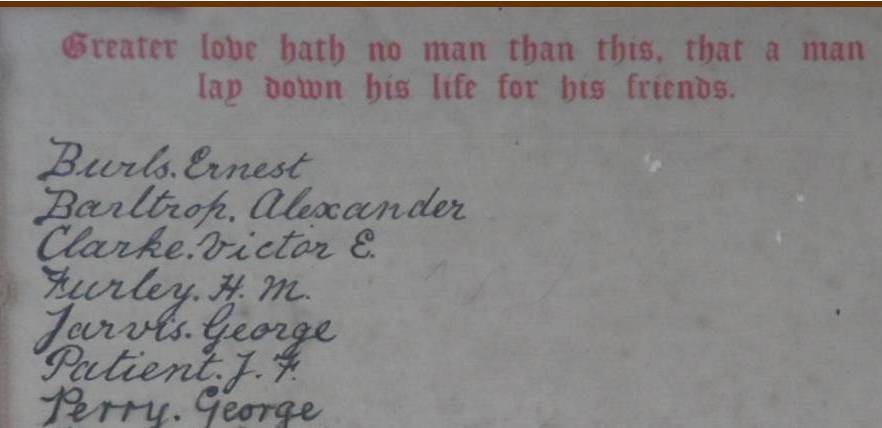 Greater love hath no man than this, that a man
lay down his life for his friends.
Burls. Ernest
Barltrop. Alexander
Clarke. Victor E.
Furley. H. M.
Jarvis. George
Patient. J. F.
Perry. George